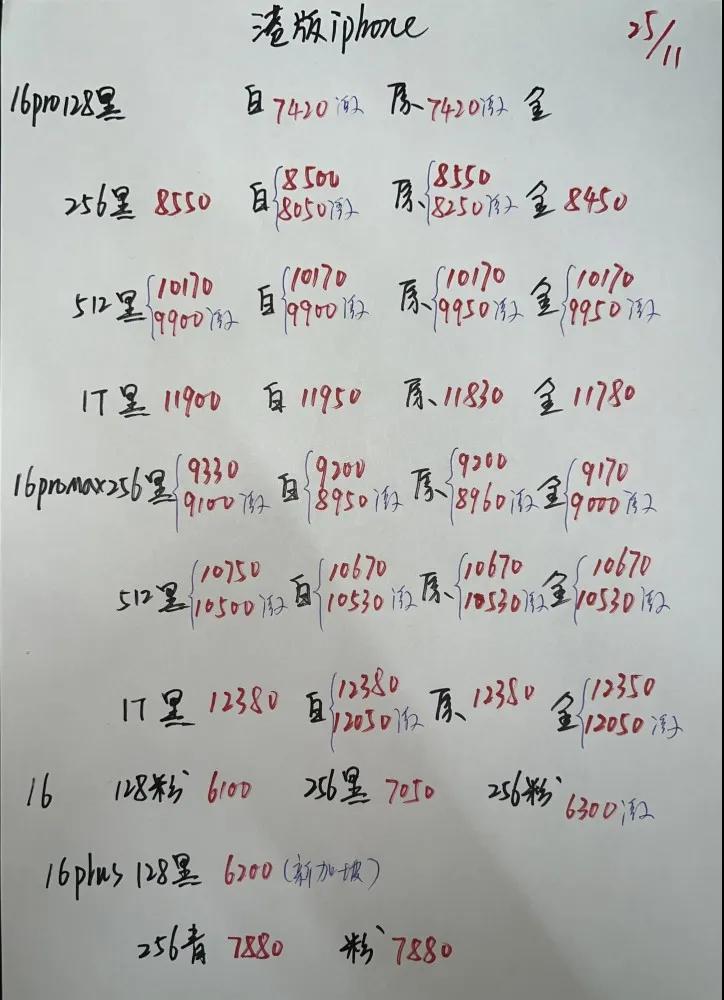 港版iphone 25/11
16pro128黑 白7420激 原7420激 金
256黑 8550 白{8500 8050激 原{8550 8250激 金 8450
512黑{10170 9900激 白{10170 9900激 原{10170 9950激 金{10170 9950激
1T黑 11900 白 11950 原 11830 金 11780
16promax256黑{9330 9100激 白{9200 8950激 原{9200 8960激 金{9170 9000激
512黑{10750 10500激 白{10670 10530激 原{10670 10530激 金{10670 10530激
1T黑 12380 白{12380 12050激 原 12380 金{12350 12050激
16 128粉 6100 256黑 7050 256粉 6300激
16plus 128黑 6200(新加坡)
256青 7880 粉 7880